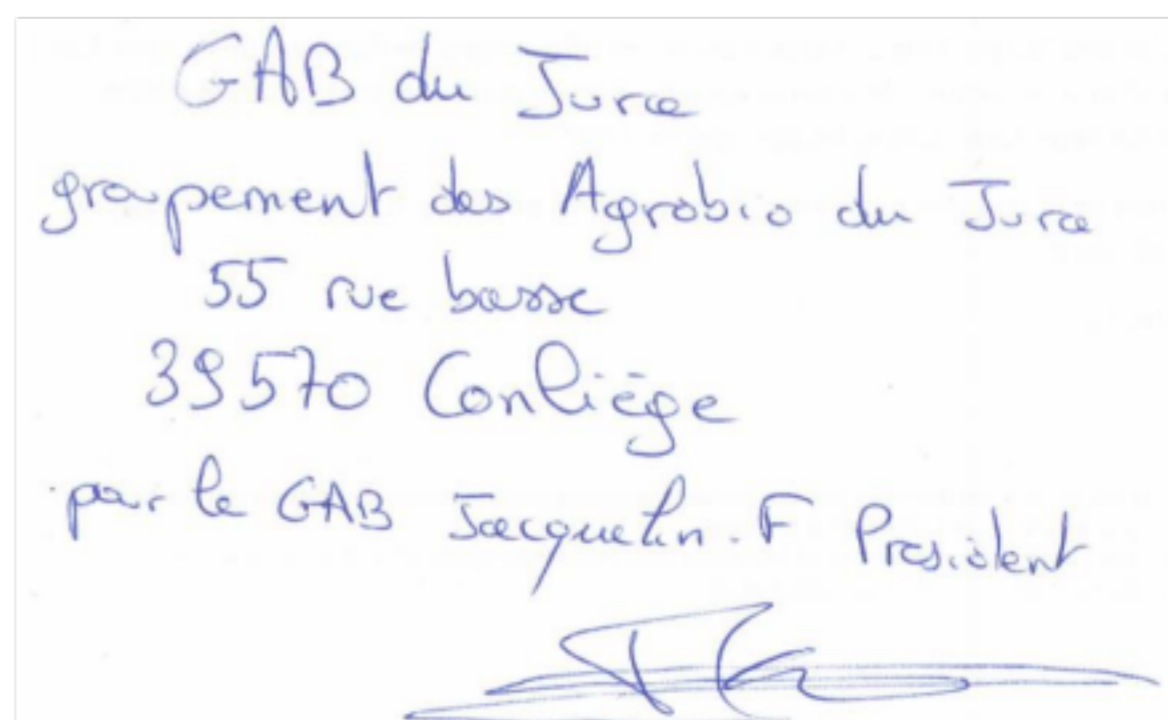 GAB du Jura
groupement des Agrobio du Jura
55 rue basse
39570 Conliège
pour le GAB Jacquelin. F President